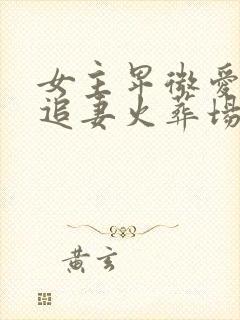 女主卑微愛
追妻火葬場
黃玄